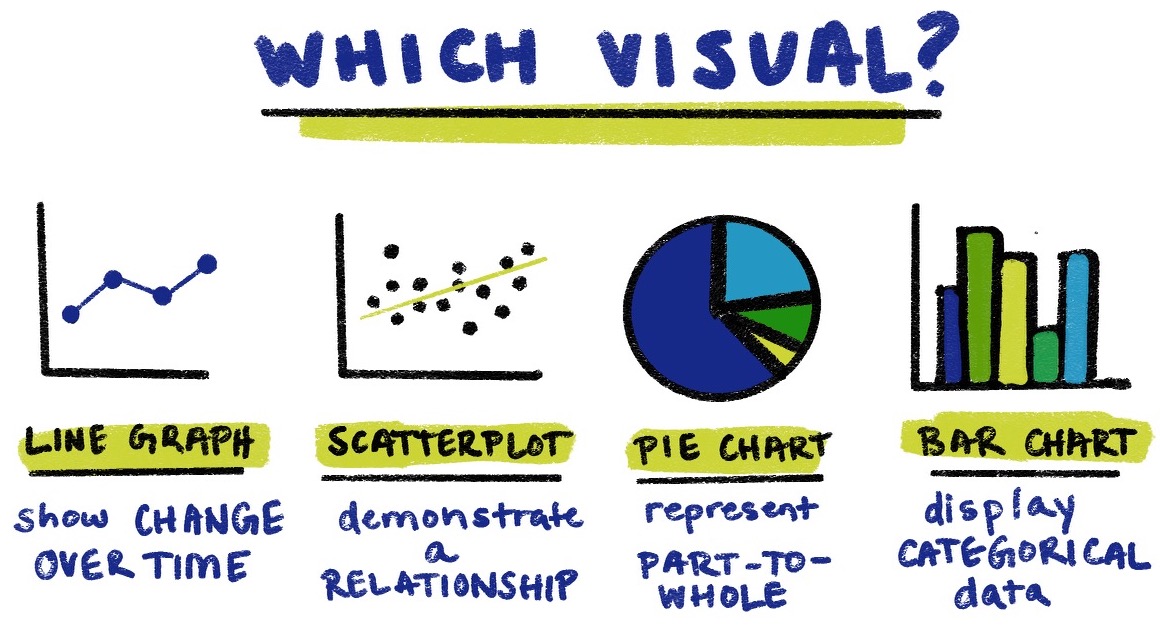 WHICH VISUAL?
LINE GRAPH
show CHANGE
OVER TIME
SCATTERPLOT
demonstrate
a
RELATIONSHIP
PIE CHART
represent
PART-TO-
WHOLE
BAR CHART
display
CATEGORICAL
data